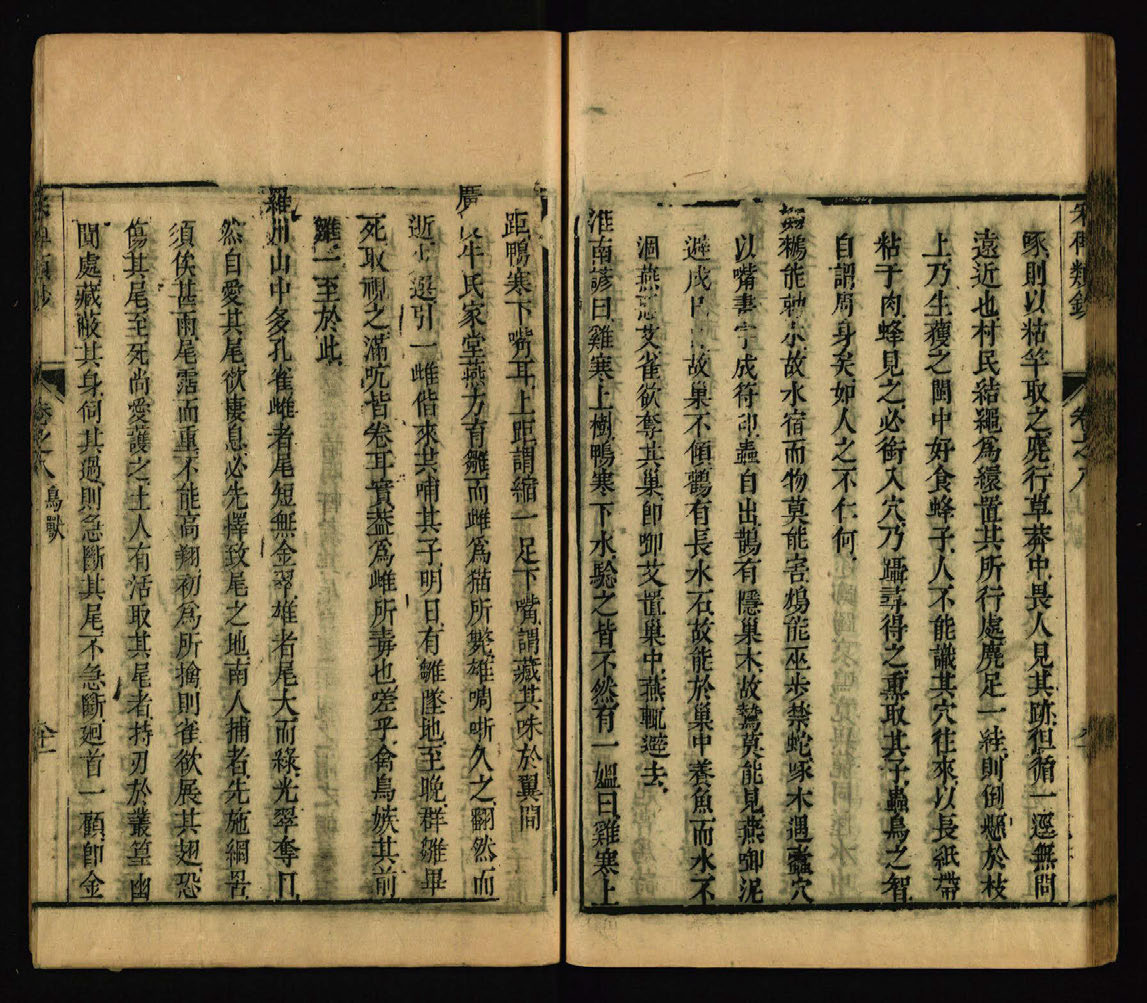 宋稗類鈔 卷之八
啄則以粘竿取之麂行草莽中畏人見其跡但循一逕無問
遠近也村民結繩爲繯置其所行處麂足一絓則倒懸於枝
上乃生獲之閩中好食蜂子人不能識其穴往來以長紙帶
粘于肉蜂見之必銜入穴乃躡尋得之熏取其子蟲鳥之智
自謂周身矣如人之不仁何
鵜能勑水故水宿而物莫能害鴆能巫步禁蛇啄木遇蠹穴
以嘴畫字成符卽蟲自出鵲有隱巢木故鷙莫能見燕啣泥
避戊故巢不傾鸛有長水石故能於巢中養魚而水不
涸燕惡艾雀欲奪其巢卽啣艾置巢中燕輒避去
淮南諺曰雞寒上樹鴨寒下水驗之皆不然有一媼曰雞寒上
距鴨寒下嘴耳上距謂縮一足下嘴謂藏其咮於翼間
廣牛氏家堂燕方有雛而雌爲猫所斃雄啁哳久之翻然而
逝少選引一雌偕來共哺其子明日有雛墜地至晚群雛畢
死取視之滿吭皆卷耳實蓋爲雌所毒也嗟乎禽鳥嫉其前
雛一至於此
羅州山中多孔雀雌者尾短無金翠雄者尾大而綠光翠奪目
然自愛其尾欲棲息必先擇致尾之地南人捕者先施網罟
須俟甚雨尾霑而重不能高翔初爲所擒則雀欲展其翅恐
傷其尾至死尚愛護之土人有活取其尾者持刃於叢篁幽
閒處藏蔽其身伺其過則急斷其尾不急斷廻首一顧卽金
卷之八 鳥獸